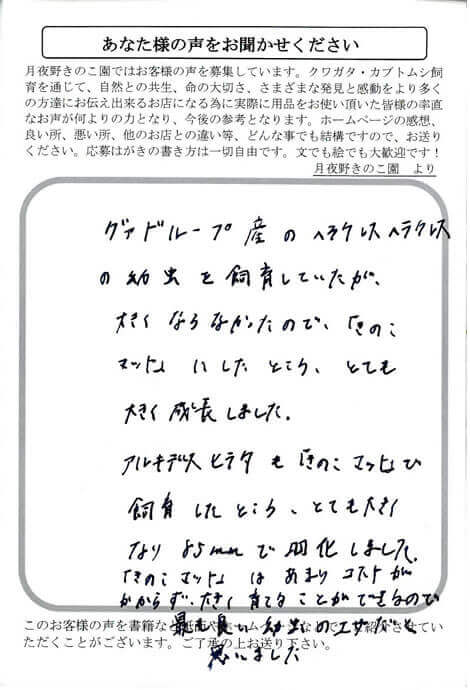 あなた様の声をお聞かせください
月夜野きのこ園ではお客様の声を募集しています。クワガタ・カブトムシ飼
育を通じて、自然との共生、命の大切さ、さまざまな発見と感動をより多く
の方達にお伝え出来るお店になる為に実際に用品をお使い頂いた皆様の率直
なお声が何よりの力となり、今後の参考となります。ホームページの感想、
良い所、悪い所、他のお店との違い等、どんな事でも結構ですので、お送り
ください。応募はがきの書き方は一切自由です。文でも絵でも大歓迎です！
月夜野きのこ園　より
グァドループ産のヘラクレスヘラクレス
の幼虫を飼育していたが、
大きくならなかったので、「きのこ
マット」にしたところ、とても
大きく成長しました。
アルキデスヒラタも「きのこマット」で
飼育したところ、とても大きく
なり85mmで羽化しました。
「きのこマット」はあまりコストが
かからず、大きく育てることができるので
最も良い幼虫のエサだと
思いました
このお客様の声を書籍など
紹介させてい
ただくことがございます。ご了承の上お送り下さい。